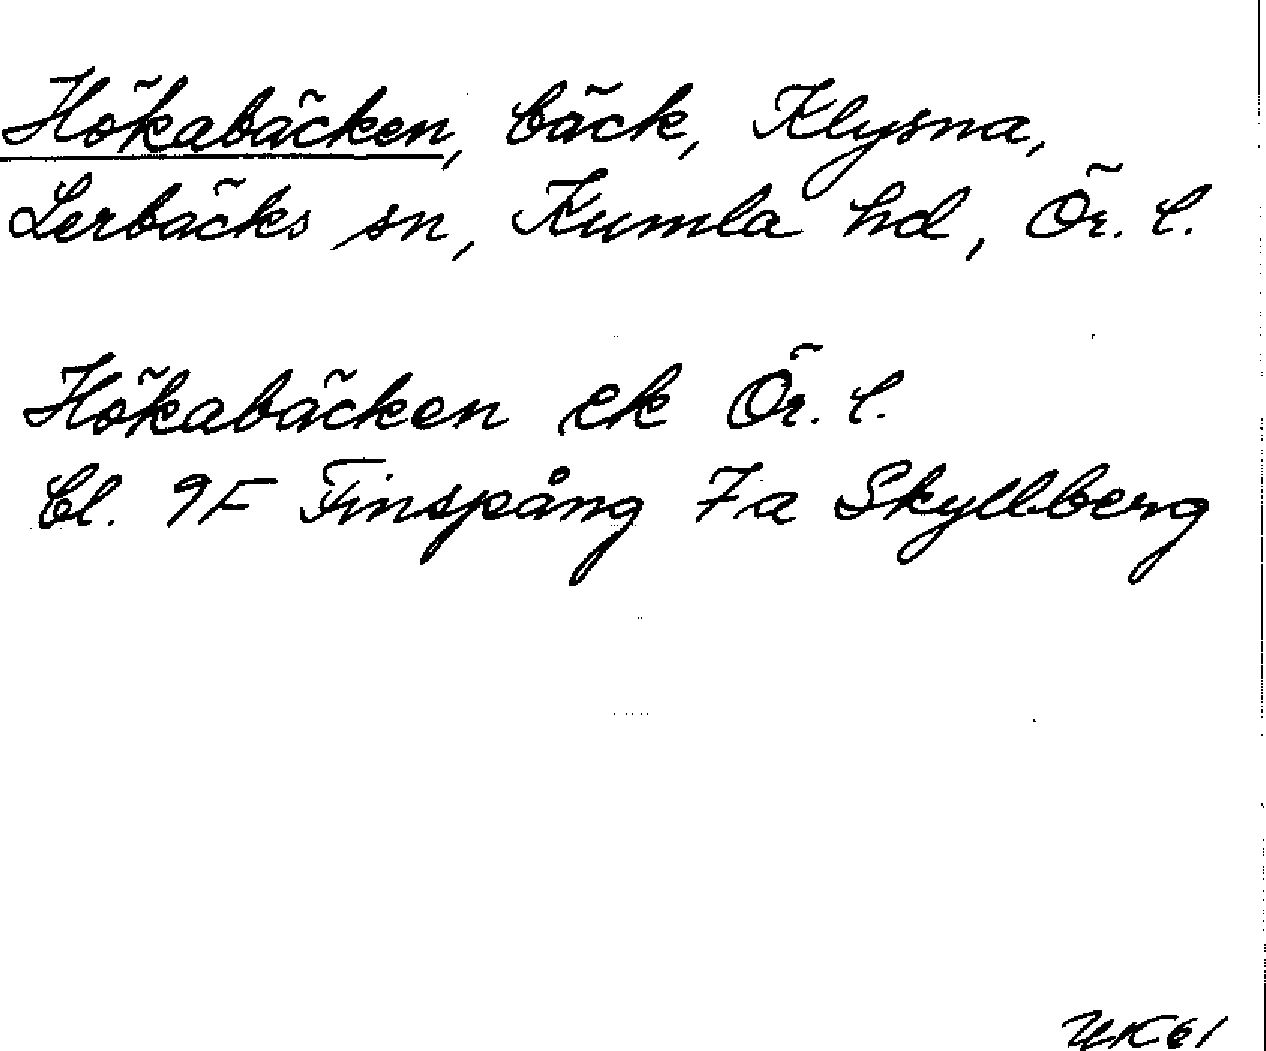 Hökabäcken, bäck, Klysna,
Lerbäcks sn, Kumla hd, Ör. l.
Hökabäcken ek Ör. l.
bl. 9F Finspång 7a Skyllberg